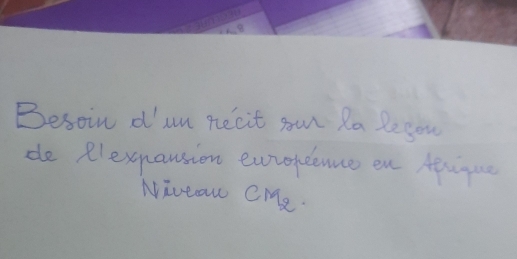 Besoin d'un récit sur la leçon
de l'expansion européenne en Afrique
Niveau CM2.